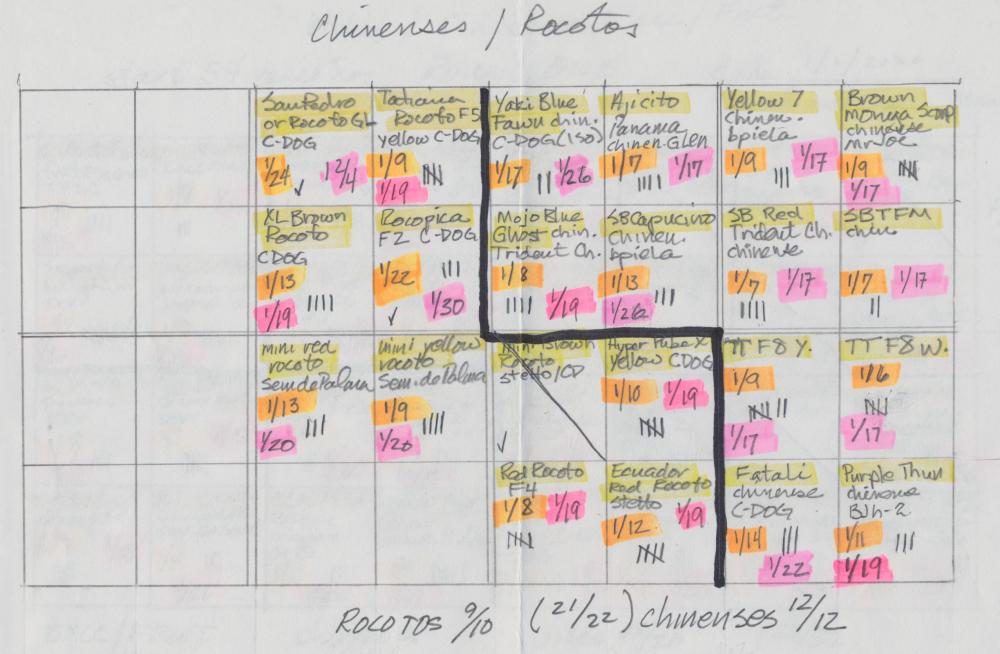 Chinenses / Rocotos
San Pedro
or Rocoto GL
C-DOG
1/24 ✓ 12/4
Rocoto F5
yellow C-DOG
1/9 𝍸
1/19
Yaki Blue
Fawn chin.
C-DOG (ISO)
1/17 || 1/26
Ajicito
Panama
chinen-GLEN
1/7 |||| 1/17
Yellow 7
Chinen.
bpiela
1/9 ||| 1/17
Brown
chinense
MrJoe
1/9 𝍸
1/17
XL Brown
Rocoto
CDOG
1/13
1/19 ||||
Rocopica
F2 C-DOG
1/22 |||
✓ 1/30
Mojo Blue
Ghost chin.
Trident Ch.
1/8
|||| 1/19
SB Capucino
Chinen.
bpiela
1/13 |||
SB Red
Trident Ch.
chinense
1/7 1/17
||||
SBTFM
chin.
1/7 1/17
||
mini red
rocoto
Sem de Palma
1/13 |||
1/20
mini yellow
rocoto
Sem. de Palma
1/9 ||||
1/20
mini brown
Rocoto
stetto/CD
✓
Hyper Pube X
yellow CDOG
1/10 1/19
𝍸
TT F8 Y.
1/9
𝍸 ||
1/17
TT F8 W.
1/6
𝍸
1/17
Red Rocoto
F4
1/8 1/19
𝍸
Ecuador
Red Rocoto
stetto
1/12 1/19
𝍸
Fatali
chinense
C-DOG
1/14 |||
1/22
Purple Thun
chinense
1/11 |||
1/19
ROCOTOS 9/10 (21/22) chinenses 12/12